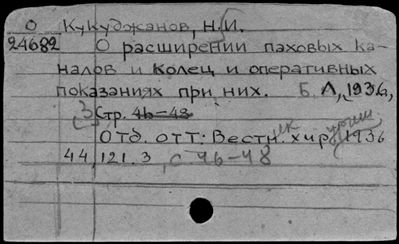 О Кукуджанов, Н.И.
24682 О расширении паховых ка-
налов и колец и оперативных
показаниях при них. Б. Л, 1936,
3 стр. 46-48
Отд. отт: Вестн. хир, 1936
44, 121. 3, с 46-48